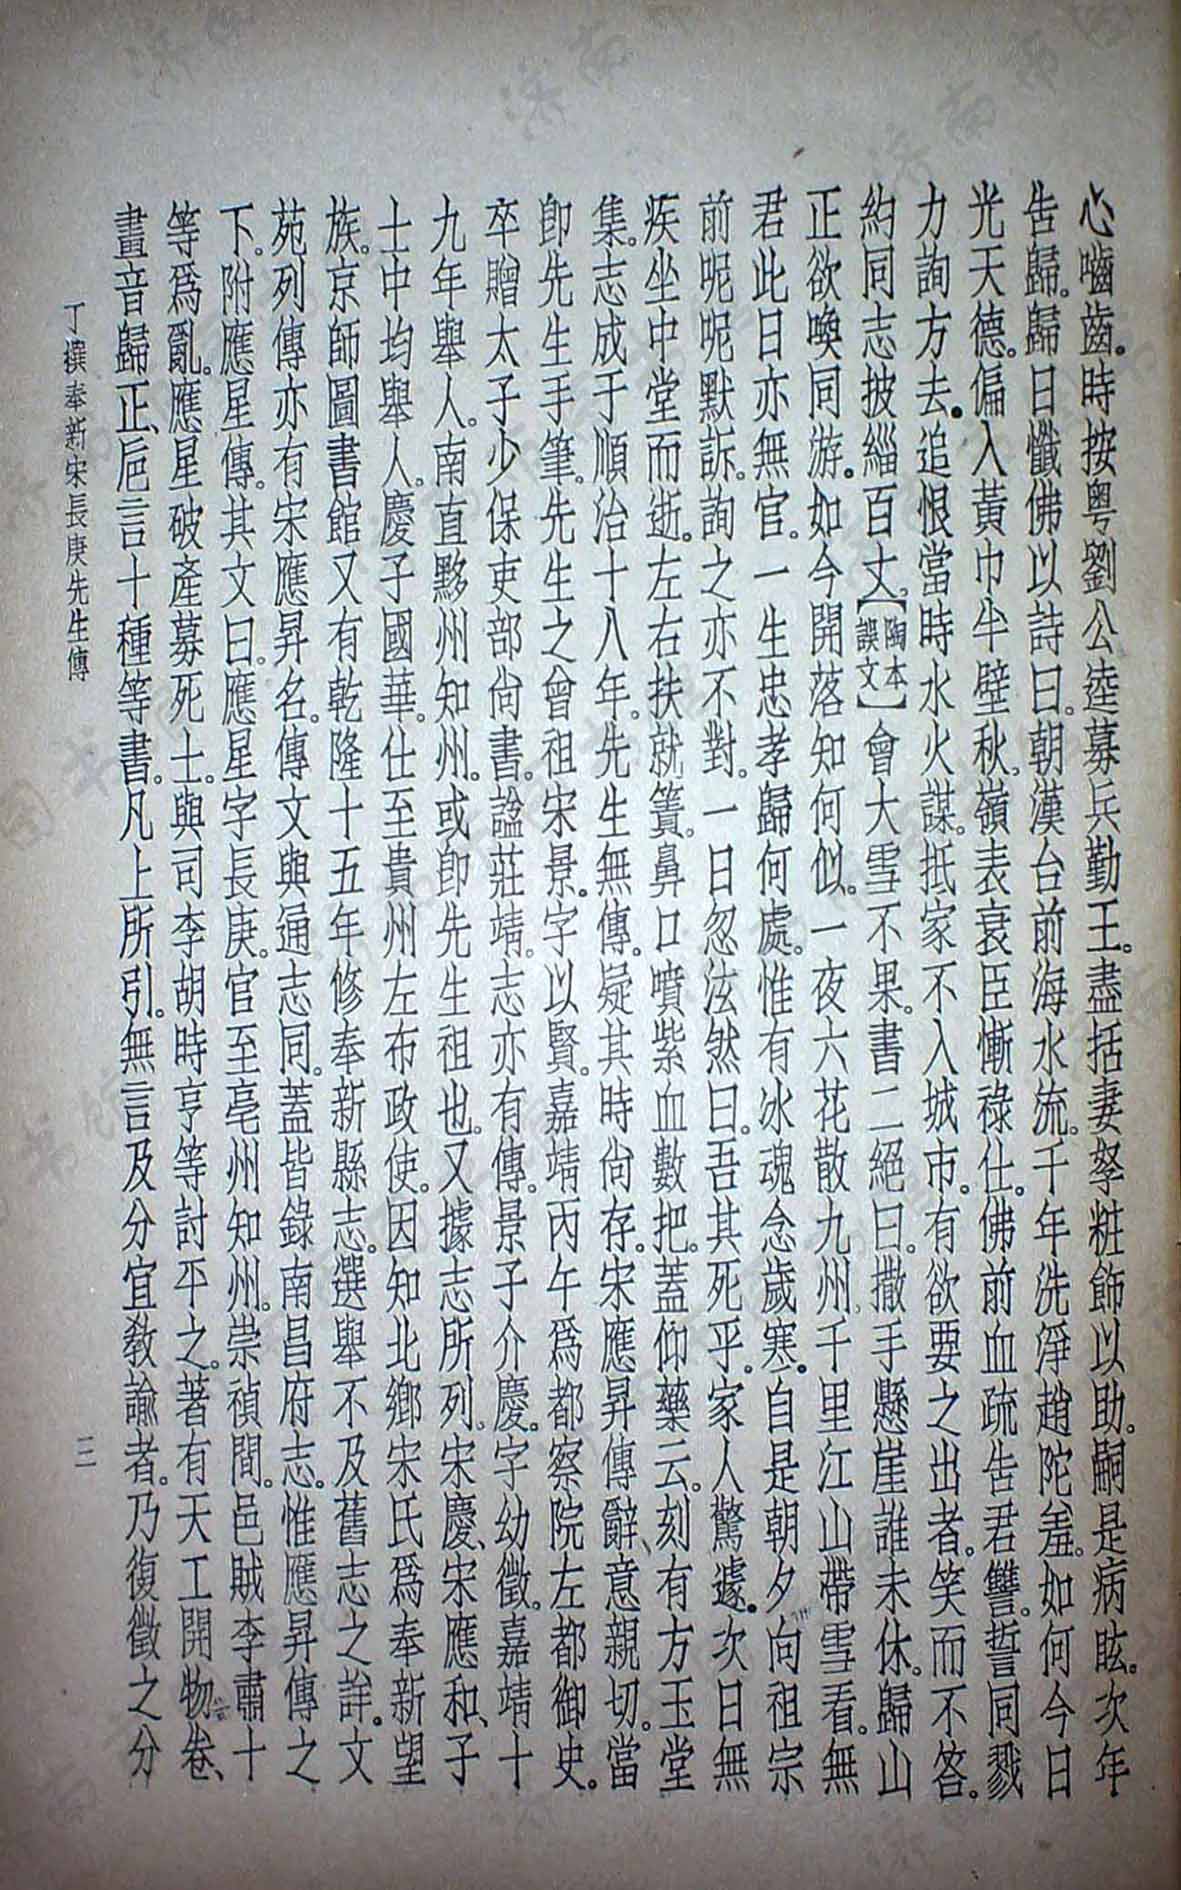 心嚙齒。時按粵劉公逵募兵勤王。盡括妻孥粧飾以助。嗣是病眩。次年
告歸。歸日懺佛以詩曰。朝漢台前海水流。千年洗淨趙陀羞。如何今日
光天德。偏入黃巾半壁秋。嶺表衰臣慚祿仕。佛前血疏告君讐。誓同戮
力詢方去。追恨當時水火謀。抵家不入城市。有欲要之出者。笑而不答。
約同志披緇百丈。【陶本誤文】會大雪不果。書二絕曰。撒手懸崖誰未休。歸山
正欲喚同游。如今開落知何似。一夜六花散九州。千里江山帶雪看。無
君此日亦無官。一生忠孝歸何處。惟有冰魂念歲寒。自是朝夕向祖宗
前呢呢默訴。詢之亦不對。一日忽泫然曰。吾其死乎。家人驚遽。次日無
疾坐中堂而逝。左右扶就簀。鼻口噴紫血數把。蓋仰藥云。刻有方玉堂
集。志成于順治十八年。先生無傳。疑其時尙存。宋應昇傳辭、意親切。當
卽先生手筆。先生之曾祖宋景。字以賢。嘉靖丙午爲都察院左都御史。
卒贈太子少保吏部尙書。諡莊靖。志亦有傳。景子介慶。字幼徵。嘉靖十
九年舉人。南直黟州知州。或卽先生祖也。又據志所列。宋慶、宋應和、子
士中均舉人。慶子國華。仕至貴州左布政使。因知北鄉宋氏爲奉新望
族。京師圖書館又有乾隆十五年修奉新縣志。選舉不及舊志之詳。文
苑列傳亦有宋應昇名。傳文與通志同。蓋皆錄南昌府志。惟應昇傳之
下。附應星傳。其文曰。應星字長庚。官至亳州知州。崇禎間。邑賊李肅十
等爲亂。應星破產募死士。與司李胡時亨等討平之。著有天工開物卷、
畫音歸正、巵言十種等書。凡上所引。無言及分宜敎諭者。乃復徵之分
丁撰奉新宋長庚先生傳
二